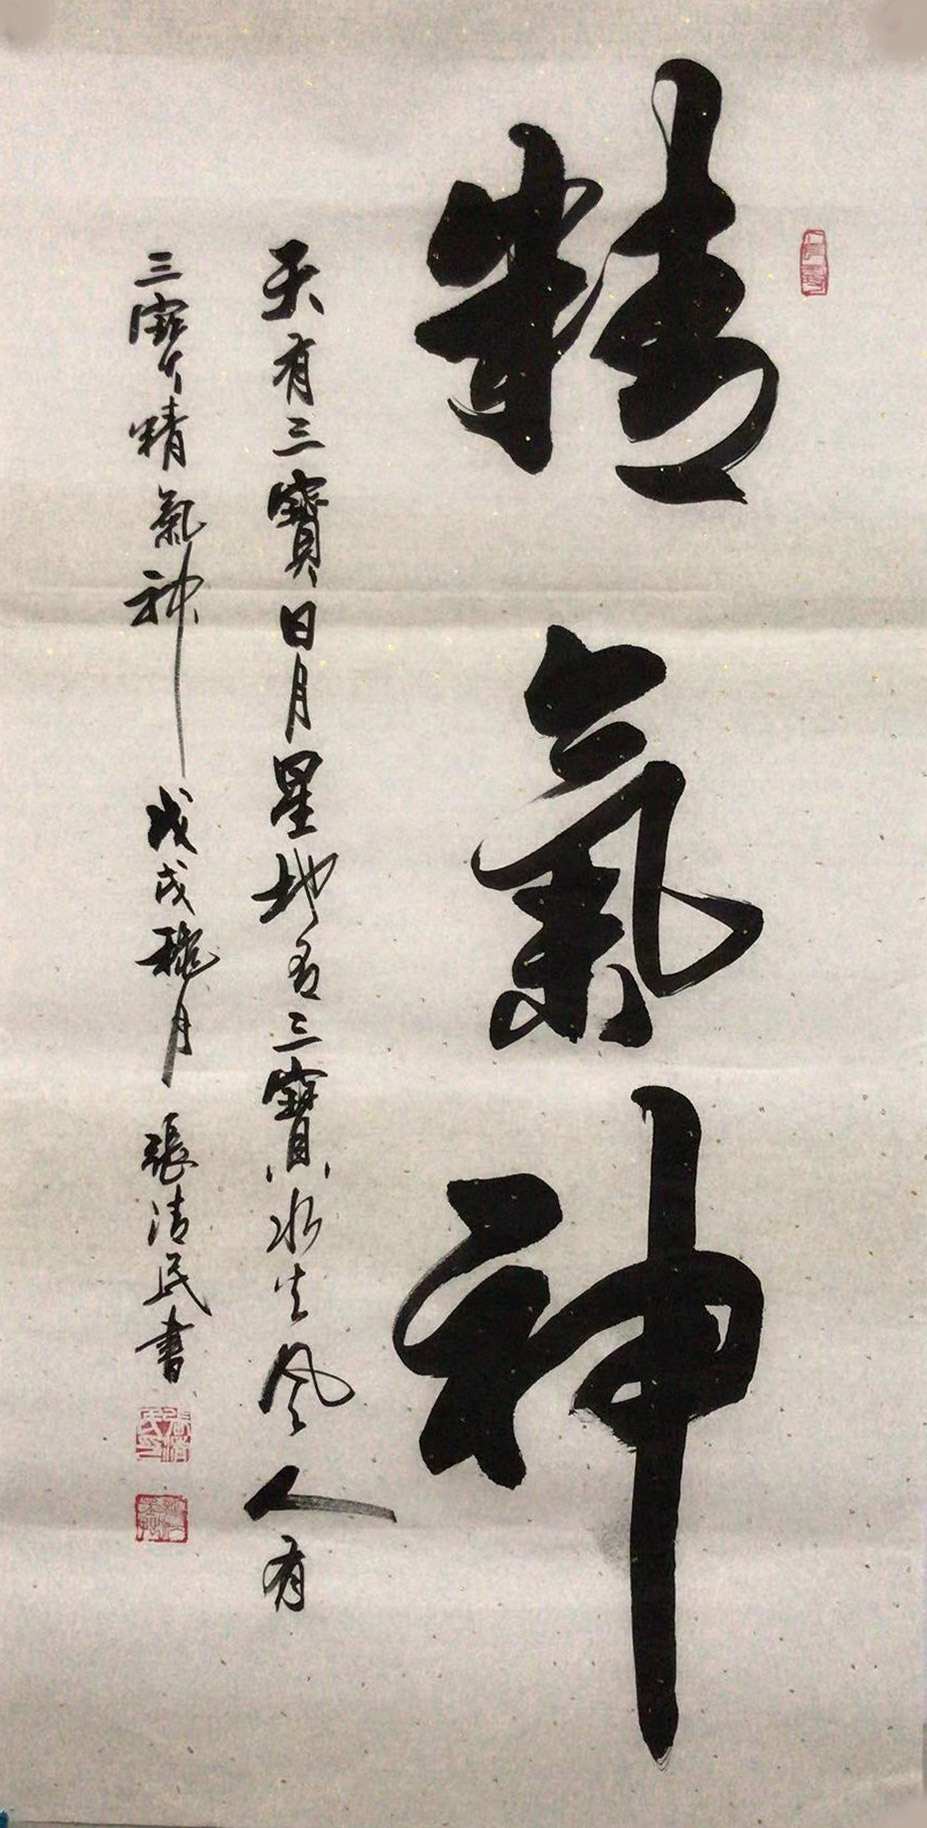 精氣神
天有三寶日月星地有三寶水火風人有
三寶精氣神 戊戌秋月 張清民書